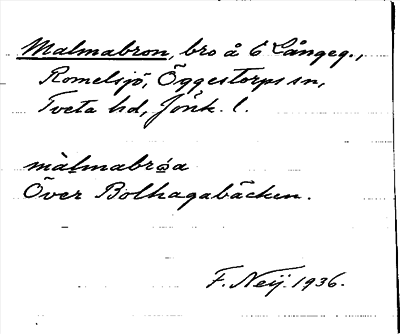 Malmabron, bro å Ö Långeg.,
Romelsjö, Öggestorps sn,
Tveta hd, Jönk. l.
màlmabrὼa
Över Bolhagabäcken.
F. Neij. 1936.